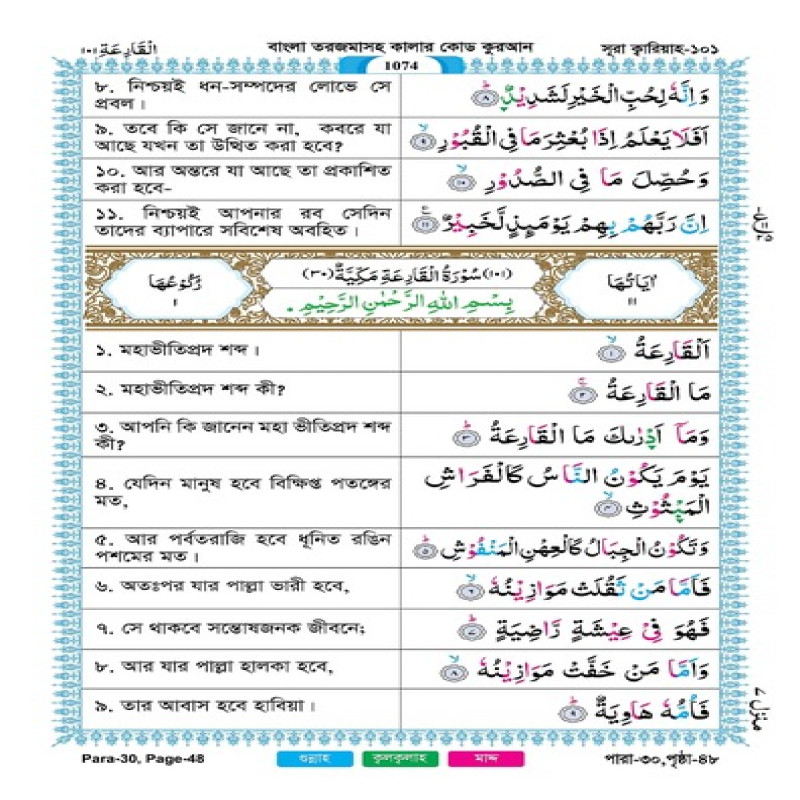 القارعة ١٠١
বাংলা তরজমাসহ কালার কোড কুরআন
সূরা ক্বারিয়াহ-১০১
1074
৮. নিশ্চয়ই ধন-সম্পদের লোভে সে
প্রবল।
وَاِنَّهٗ لِحُبِّ الْخَيْرِ لَشَدِيْدٌ ۟ؕ ٨
৯. তবে কি সে জানে না, কবরে যা
আছে যখন তা উত্থিত করা হবে?
اَفَلَا يَعْلَمُ اِذَا بُعْثِرَ مَا فِى الْقُبُوْرِ ۙ ٩
১০. আর অন্তরে যা আছে তা প্রকাশিত
করা হবে-
وَحُصِّلَ مَا فِى الصُّدُوْرِ ۙ ١٠
১১. নিশ্চয়ই আপনার রব সেদিন
তাদের ব্যাপারে সবিশেষ অবহিত।
اِنَّ رَبَّهُمْ بِهِمْ يَوْمَىِٕذٍ لَّخَبِيْرٌ ١١
رُكُوْعُهَا
١
(١٠١) سُوْرَةُ الْقَارِعَةِ مَكِّيَّةٌ (٣٠)
بِسْمِ اللّٰهِ الرَّحْمٰنِ الرَّحِيْمِ
اٰيَاتُهَا
١١
১. মহাভীতিপ্রদ শব্দ।
اَلْقَارِعَةُ ۙ ١
২. মহাভীতিপ্রদ শব্দ কী?
مَا الْقَارِعَةُ ۚ ٢
৩. আপনি কি জানেন মহা ভীতিপ্রদ শব্দ
কী?
وَمَاۤ اَدْرٰىكَ مَا الْقَارِعَةُ ؕ ٣
৪. যেদিন মানুষ হবে বিক্ষিপ্ত পতঙ্গের
মত,
يَوْمَ يَكُوْنُ النَّاسُ كَالْفَرَاشِ
الْمَبْثُوْثِ ۙ ٤
৫. আর পর্বতরাজি হবে ধূনিত রঙিন
পশমের মত।
وَتَكُوْنُ الْجِبَالُ كَالْعِهْنِ الْمَنْفُوْشِ ؕ ٥
৬. অতঃপর যার পাল্লা ভারী হবে,
فَاَمَّا مَنْ ثَقُلَتْ مَوَازِيْنُهٗ ۙ ٦
৭. সে থাকবে সন্তোষজনক জীবনে;
فَهُوَ فِىْ عِيْشَةٍ رَّاضِيَةٍ ؕ ٧
৮. আর যার পাল্লা হালকা হবে,
وَاَمَّا مَنْ خَفَّتْ مَوَازِيْنُهٗ ۙ ٨
৯. তার আবাস হবে হাবিয়া।
فَاُمُّهٗ هَاوِيَةٌ ؕ ٩
منزل ٧
Para-30, Page-48
গুন্নাহ
ক্বলক্বলাহ
মাদ্দ
পারা-৩০,পৃষ্ঠা-৪৮